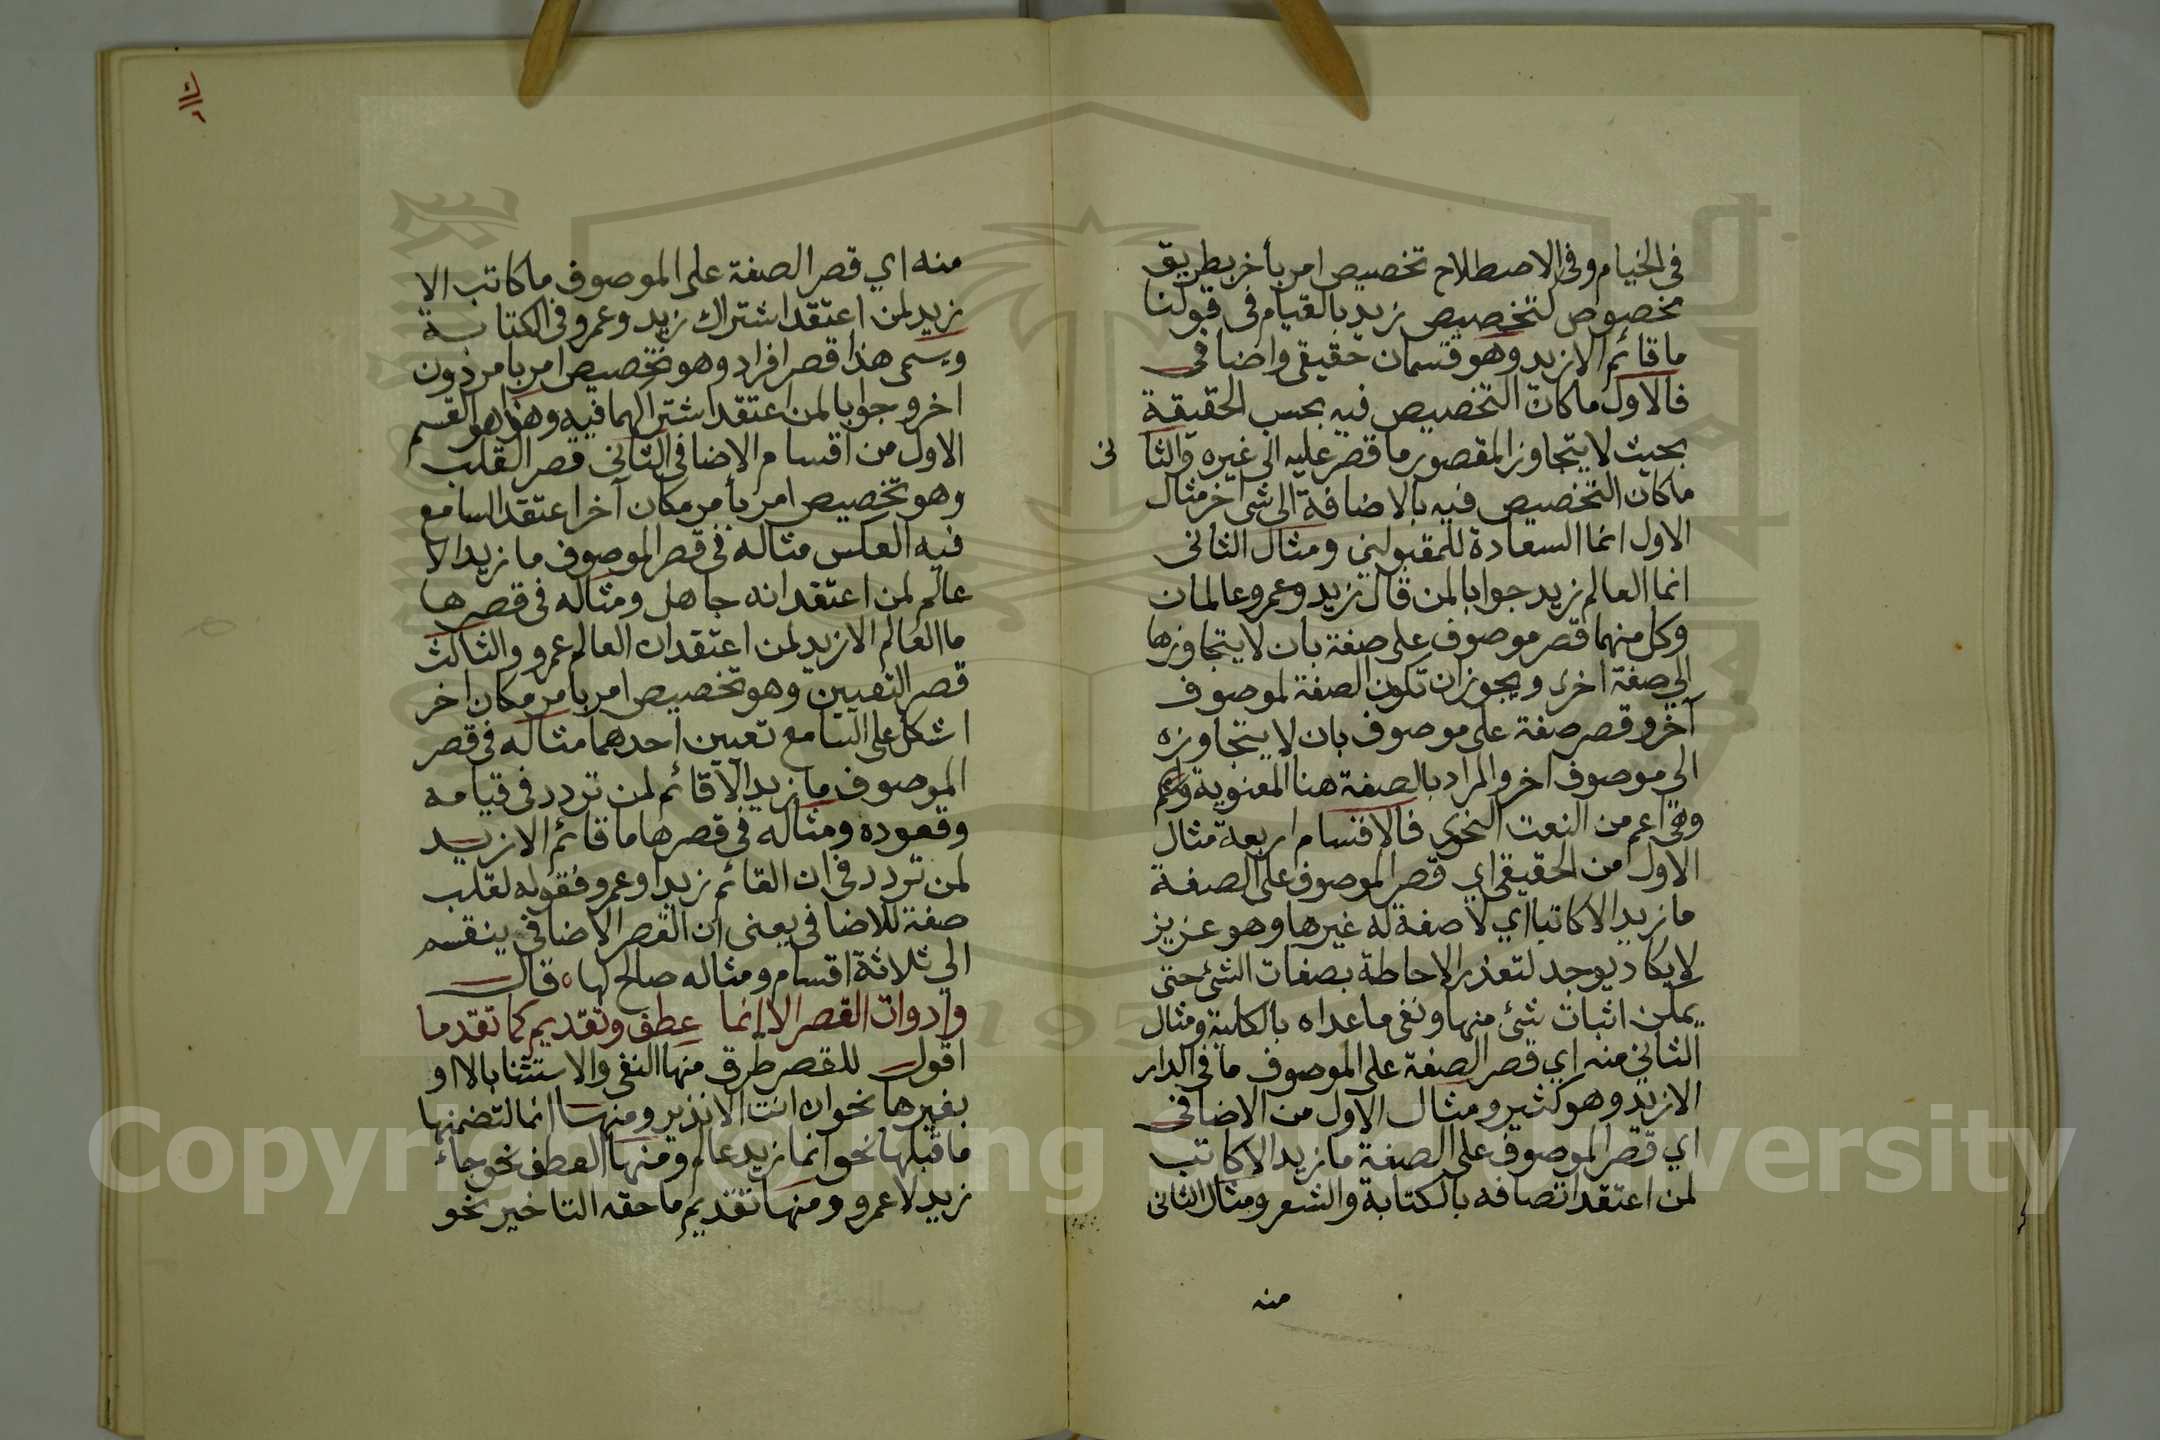 في الخيام وفي الاصطلاح تخصيص امر بأخر بطريق
مخصوص كتخصيص زيد بالقيام في قولنا
ما قائم الا زيد وهو قسمان حقيقي واضافي
فالاول ما كان التخصيص فيه بحسب الحقيقة
بحيث لا يتجاوز المقصور ما قصر عليه الى غيره والثا
نى
ما كان التخصيص فيه بالاضافة الى شئ آخر مثال
الاول انما السعادة للمقبولين ومثال الثاني
انما العالم زيد جوابا لمن قال زيد وعمرو عالمان
وكل منهما قصر موصوف على صفة بان لا يتجاوزها
الي صفة اخرى ويجوز ان تكون الصفة لموصوف
آخر وقصر صفة على موصوف بان لا يتجاوزه
الي موصوف اخر والمراد بالصفة هنا المعنوية
وهي اعم من النعت النحوي فالاقسام اربعة مثال
الاول من الحقيقي اي قصر الموصوف على الصفة
ما زيد الا كاتبا اي لا صفة له غيرها وهو عزيز
لا يكاد يوجد لتعذر الاحاطة بصفات الشئ حتى
يمكن اثبات شئ منها ونفي ما عداه بالكلية ومثال
الثاني منه اي قصر الصفة على الموصوف ما في الدار
الا زيد وهو كثير ومثال الاول من الاضافي
اي قصر الموصوف على الصفة ما زيد الا كاتب
لمن اعتقد اتصافه بالكتابة والشعر ومثال الثاني
منه
منه اي قصر الصفة على الموصوف ما كاتب الا
زيد لمن اعتقد اشتراك زيد وعمرو في الكتابة
ويسمى هذا قصر افراد وهو تخصيص امر بامر دون
اخر وجوابا لمن اعتقد اشتراكهما فيه وهذا هو القسم
الاول من اقسام الاضافي الثاني قصر القلب
وهو تخصيص امر بأمر مكان آخر اعتقد السامع
فيه العكس مثاله في قصر الموصوف ما زيد الا
عالم لمن اعتقد انه جاهل ومثاله في قصرها
ما العالم الا زيد لمن اعتقد ان العالم عمرو والثالث
قصر التعيين وهو تخصيص امر بامر مكان اخر
اشكل على السامع تعيين احدهما مثاله في قصر
الموصوف ما زيد الا قائم لمن تردد في قيامه
وقعوده ومثاله في قصرها ما قائم الا زيد
لمن تردد في ان القائم زيد او عمرو فقوله لقلب
صفة للاضافي يعني ان القصر الاضافي ينقسم
الي ثلاثة اقسام ومثاله صالح لها ه قال
وادوات القصر الا انما عطف وتقديم كما تقدما
اقول للقصر طرق منها النفي والاستثنا بالا او
بغيرها نحو ان انت الا نذير ومنها انما لتضمنها
ما قبلها نحو انما زيد عالم ومنها العطف نحو جاء
زيد لا عمرو ومنها تقديم ما حقه التاخير نحو
Copyright © King Saud University